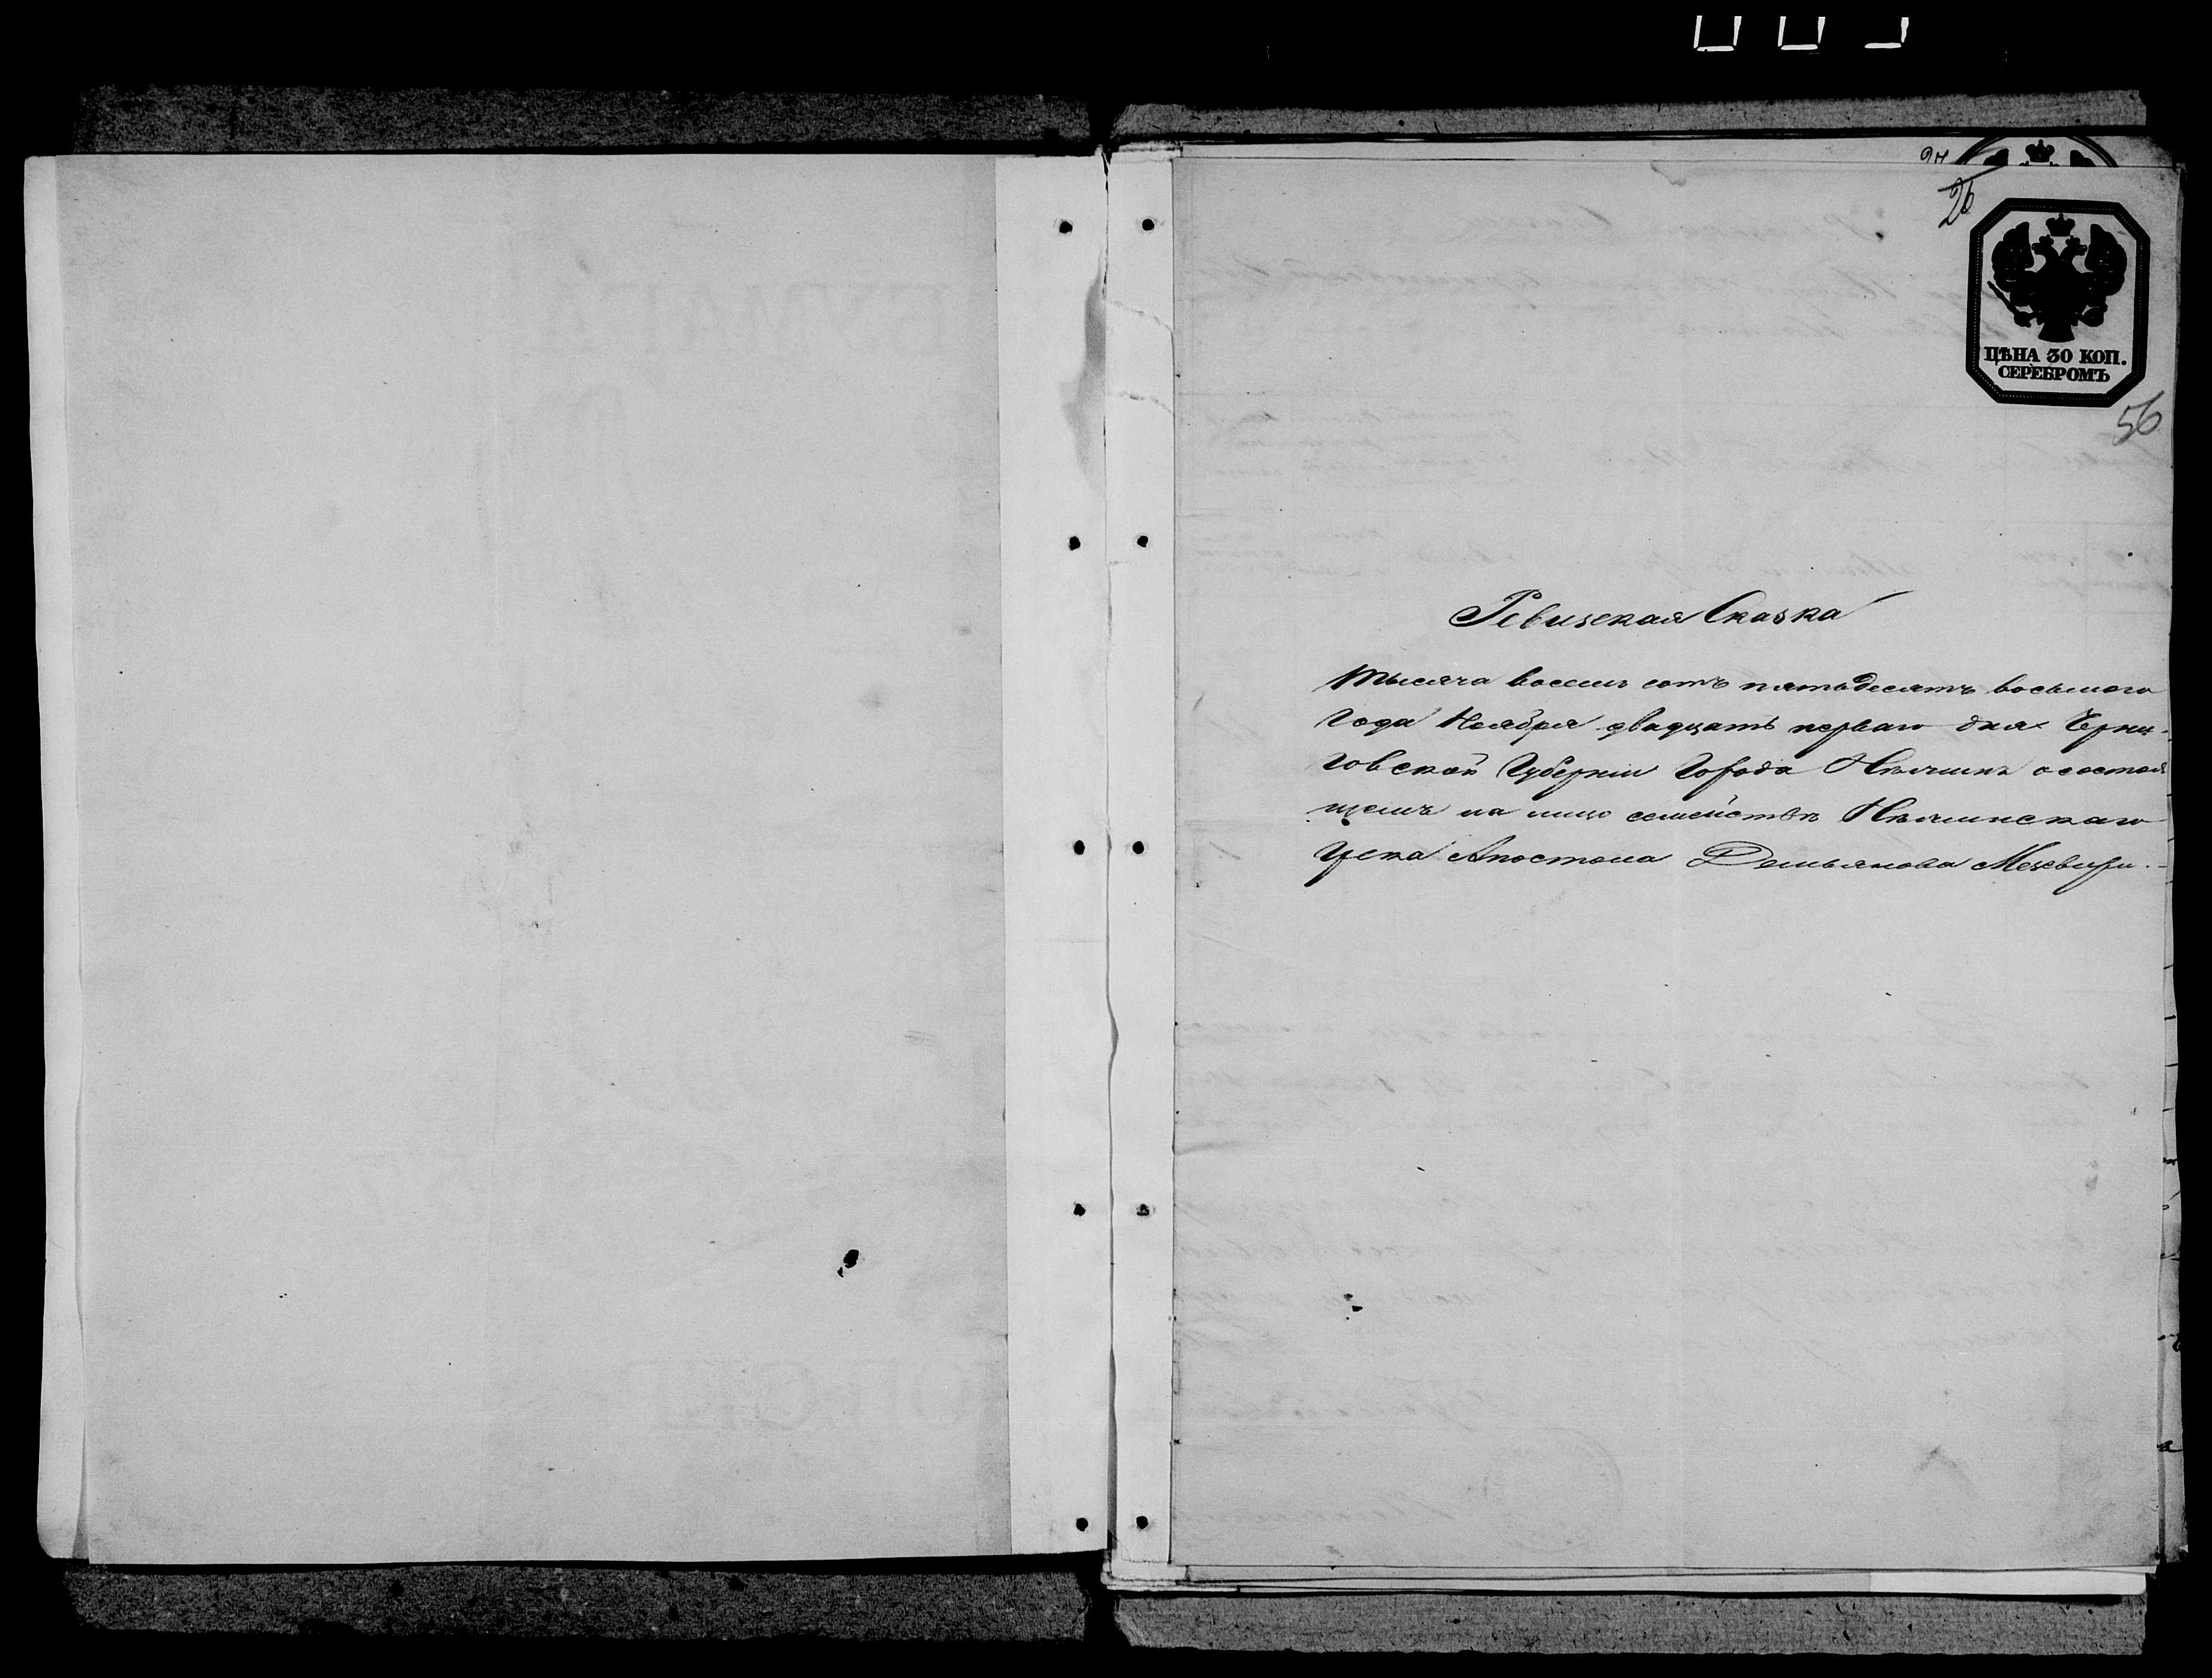 26
ЦѢНА 30 КОП.
СЕРЕБРОМЪ
56
Ревизская Сказка
тысяча восемь сотъ пятьдесятъ восьмого
Года Ноября двадцать перваго дня Черни-
говской Губерніи Города Нѣжина о состоя
щемъ на лицо семействѣ Нѣжинскаго
Грека Апостола Демьянова